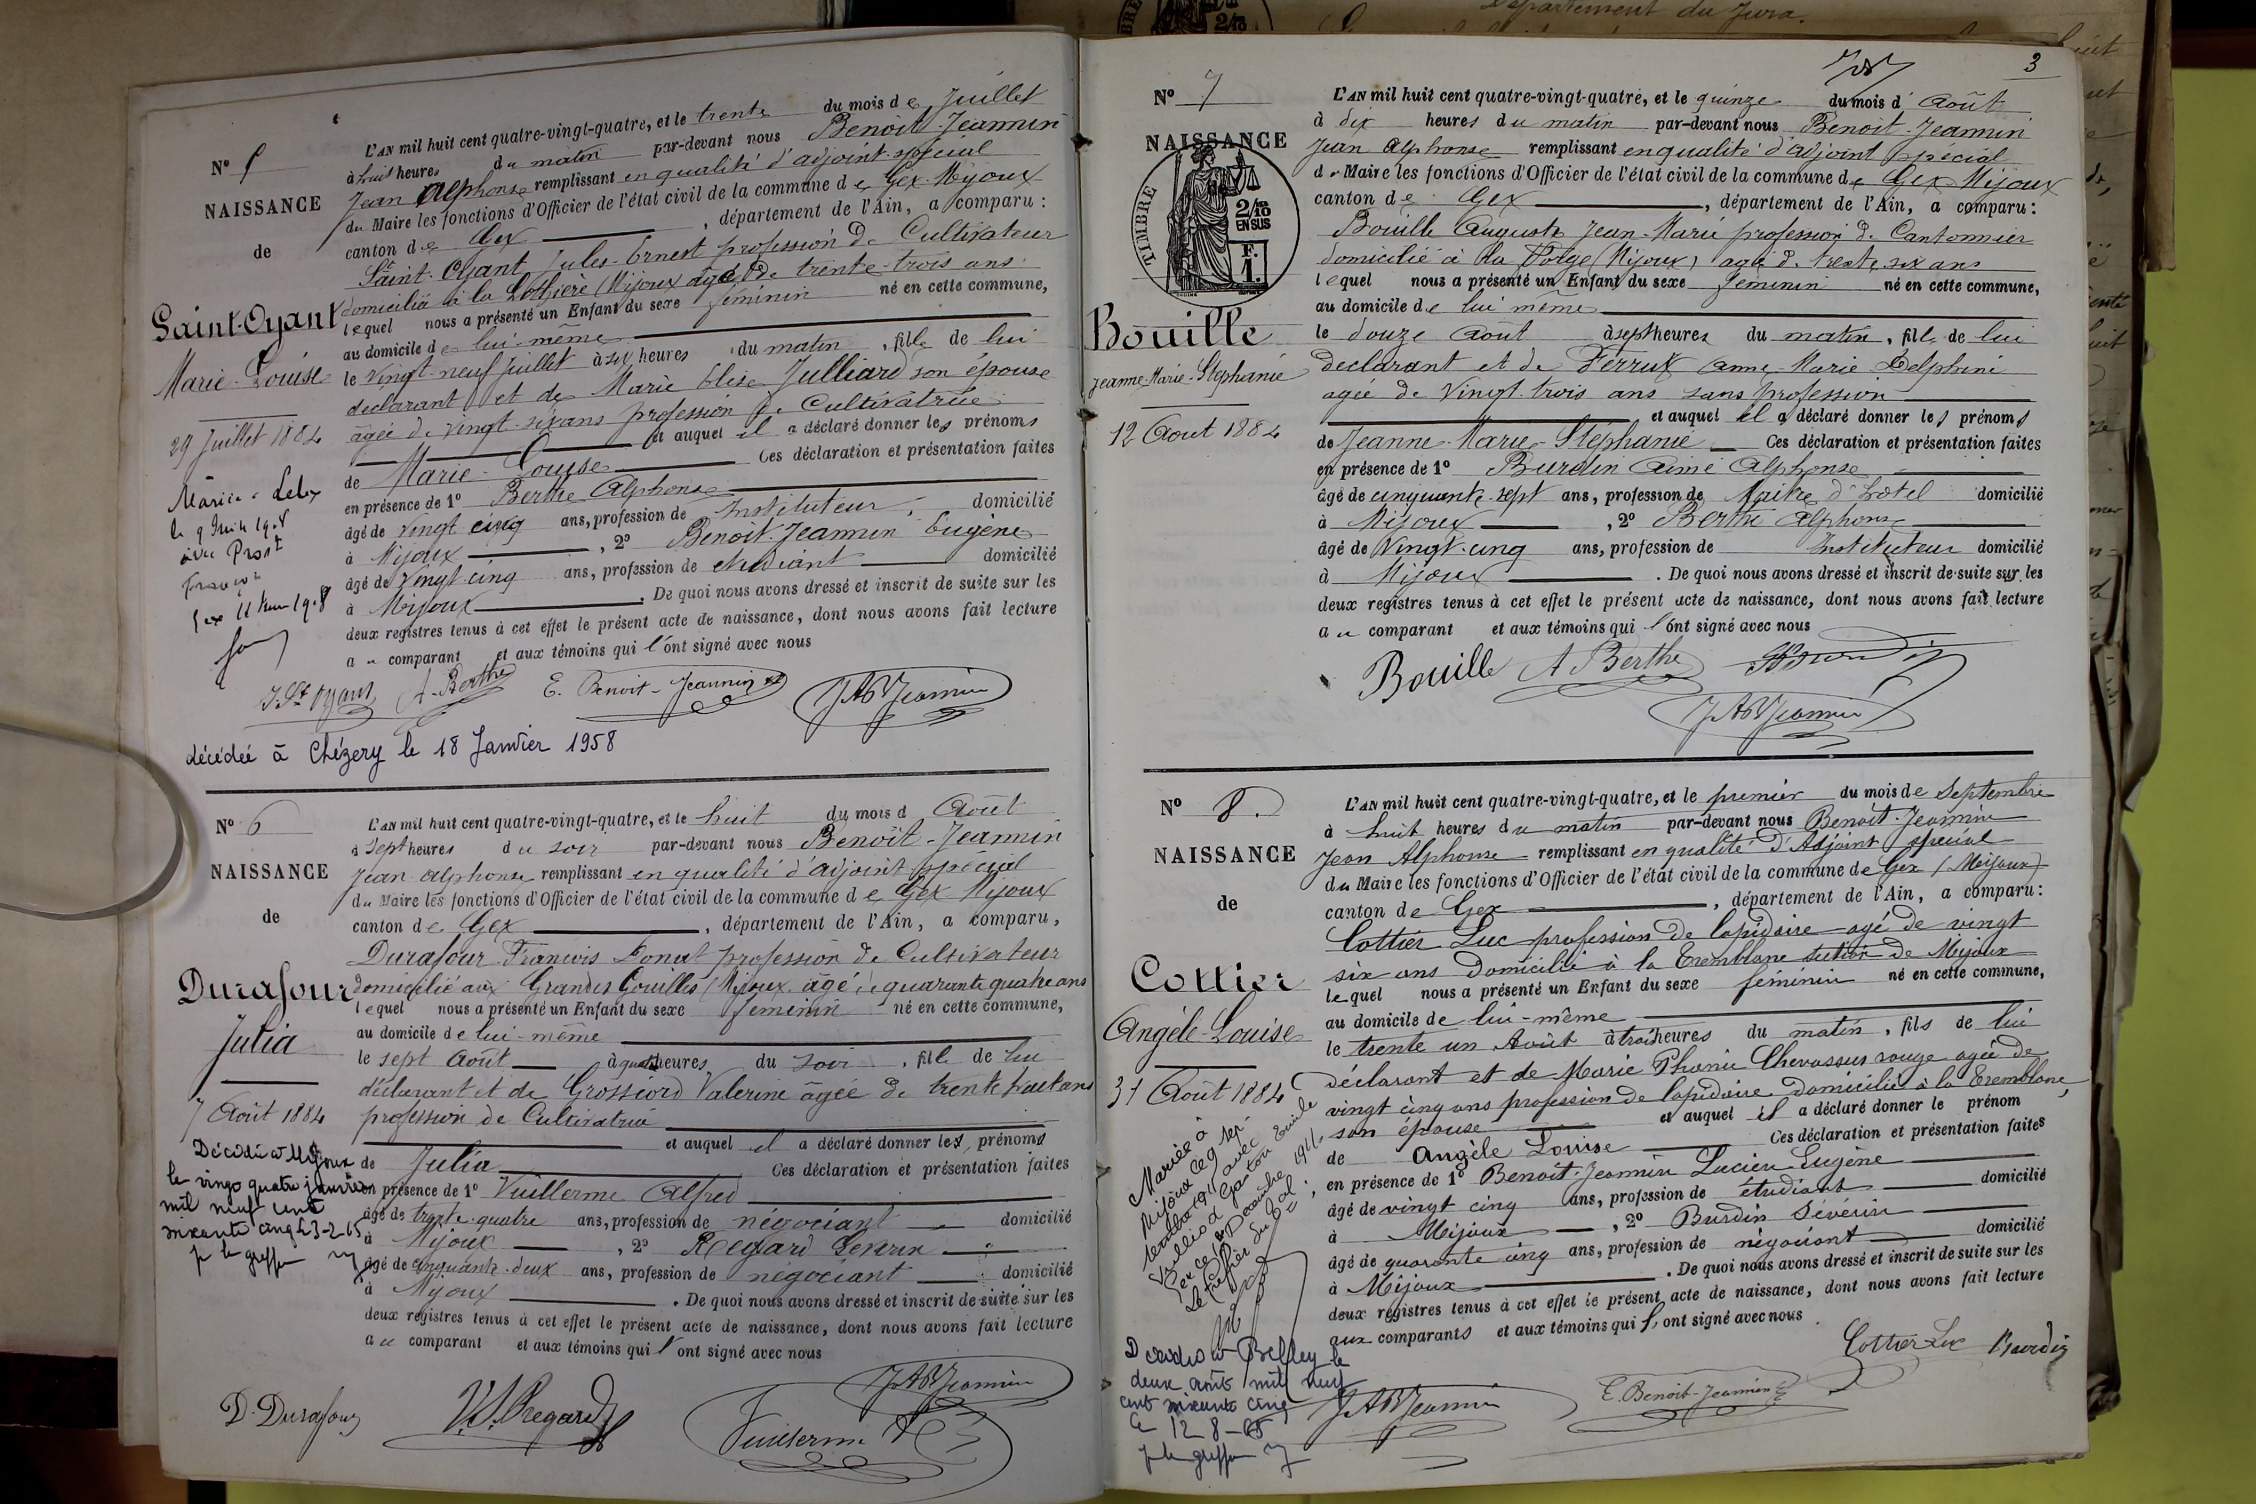 N° 5
NAISSANCE
de
Saint-Oyant
Marie-Louise
29 Juillet 1884
Mariée à Lélex
le 9 Juin 1908
avec Prost
François
Gex 11 Juin 1908
L'AN mil huit cent quatre-vingt-quatre, et le trente du mois de Juillet
à huit heures du matin par-devant nous Benoit-Jeannin
Jean Alphonse remplissant en qualité d'adjoint spécial
du Maire les fonctions d'Officier de l'état civil de la commune de Gex-Mijoux
canton de Gex, département de l'Ain, a comparu :
Saint-Oyant Jules Ernest profession de Cultivateur
domicilié à la Lothière (Mijoux) âgé de trente-trois ans
lequel nous a présenté un Enfant du sexe féminin né en cette commune,
au domicile de lui-même
le vingt-neuf Juillet à six heures du matin, fille de lui
déclarant et de Marie Elise Julliard son épouse
âgée de vingt-six ans profession de Cultivatrice
et auquel il a déclaré donner les prénoms
de Marie-Louise Ces déclaration et présentation faites
en présence de 1° Berthe Alphonse
âgé de vingt cinq ans, profession de Instituteur, domicilié
à Mijoux, 2° Benoit-Jeannin Eugène
âgé de vingt-cinq ans, profession de étudiant domicilié
à Mijoux. De quoi nous avons dressé et inscrit de suite sur les
deux registres tenus à cet effet le présent acte de naissance, dont nous avons fait lecture
au comparant et aux témoins qui l'ont signé avec nous
J St Oyant A. Berthe E. Benoit-Jeannin JABJeannin
décédée à Chézery le 18 Janvier 1958
N° 6
NAISSANCE
de
Durafour
Julia
7 Août 1884
Décédée à Mijoux
le vingt quatre janvier
mil neuf cent
soixante cinq 23-2-65
p le greffier
L'AN mil huit cent quatre-vingt-quatre, et le huit du mois d Août
à sept heures du soir par-devant nous Benoit-Jeannin
Jean Alphonse remplissant en qualité d'adjoint spécial
du Maire les fonctions d'Officier de l'état civil de la commune de Gex Mijoux
canton de Gex, département de l'Ain, a comparu,
Durafour François Donat profession de Cultivateur
domicilié aux Grandes Gouilles (Mijoux) âgé de quarante quatre ans
lequel nous a présenté un Enfant du sexe féminin né en cette commune,
au domicile de lui-même
le sept Août à quatre heures du soir, fille de lui
déclarant et de Grossiord Valerine âgée de trente huit ans
profession de Cultivatrice
et auquel il a déclaré donner les prénoms
de Julia Ces déclaration et présentation faites
en présence de 1° Vuillerme Alfred
âgé de trente-quatre ans, profession de négociant domicilié
à Mijoux, 2° Regard Séverin
âgé de cinquante-deux ans, profession de négociant domicilié
à Mijoux. De quoi nous avons dressé et inscrit de suite sur les
deux registres tenus à cet effet le présent acte de naissance, dont nous avons fait lecture
au comparant et aux témoins qui l'ont signé avec nous
JABJeannin
D. Durafour V.S. Regard Vuillerme A
3
N° 7
NAISSANCE
TIMBRE
2/10
EN SUS
F.
1.
Bouille
Jeanne-Marie-Stéphanie
12 Août 1884
L'AN mil huit cent quatre-vingt-quatre, et le quinze du mois d' Août
à dix heures du matin par-devant nous Benoit-Jeannin
Jean Alphonse remplissant en qualité d'adjoint spécial
du Maire les fonctions d'Officier de l'état civil de la commune de Gex-Mijoux
canton de Gex, département de l'Ain, a comparu :
Bouille Auguste Jean-Marie profession de Cantonnier
domicilié à la Forge (Mijoux) âgé de trente six ans
lequel nous a présenté un Enfant du sexe féminin né en cette commune,
au domicile de lui même
le douze Août à sept heures du matin, fille de lui
déclarant et de Ferrux Anne-Marie-Delphine
agée de vingt-trois ans sans profession
et auquel il a déclaré donner les prénoms
de Jeanne-Marie-Stéphanie Ces déclaration et présentation faites
en présence de 1° Burdin Aimé Alphonse
âgé de cinquante-sept ans, profession de Maître d'hôtel domicilié
à Mijoux, 2° Berthe Alphonse
âgé de vingt-cinq ans, profession de Instituteur domicilié
à Mijoux. De quoi nous avons dressé et inscrit de suite sur les
deux registres tenus à cet effet le présent acte de naissance, dont nous avons fait lecture
au comparant et aux témoins qui l'ont signé avec nous
Bouille A Berthe Burdin
JABJeannin
N° 8.
NAISSANCE
de
Cottier
Angèle-Louise
31 Août 1884
Mariée à
Mijoux le 9 sep-
tembre 1911 avec
Gaston Emile
Gex le Décembre 1911
Le Greffier
Décédée à Belley le
deux août mil neuf
cent soixante cinq
le 12-8-65
p le greffier
L'AN mil huit cent quatre-vingt-quatre, et le premier du mois de Septembre
à huit heures du matin par-devant nous Benoît-Jeannin
Jean Alphonse remplissant en qualité d'Adjoint spécial
du Maire les fonctions d'Officier de l'état civil de la commune de Gex (Mijoux)
canton de Gex, département de l'Ain, a comparu :
Cottier Luc profession de lapidaire agé de vingt
six ans domicilié à la Tremblane section de Mijoux
lequel nous a présenté un Enfant du sexe féminin né en cette commune,
au domicile de lui-même
le trente un Août à trois heures du matin, fils de lui
déclarant et de Marie Phanie Chevassus rouge agée de
vingt cinq ans profession de lapidaire domiciliée à la Tremblane,
son épouse et auquel il a déclaré donner le prénom
de Angèle Louise Ces déclaration et présentation faites
en présence de 1° Benoit-Jeannin Lucien Eugène
âgé de vingt cinq ans, profession de étudiant domicilié
à Mijoux, 2° Burdin Sévérin
âgé de quarante cinq ans, profession de négociant domicilié
à Mijoux. De quoi nous avons dressé et inscrit de suite sur les
deux registres tenus à cet effet le présent acte de naissance, dont nous avons fait lecture
aux comparants et aux témoins qui l'ont signé avec nous
Cottier Luc Burdin
JABJeannin E. Benoit-Jeannin
Département du Jura.